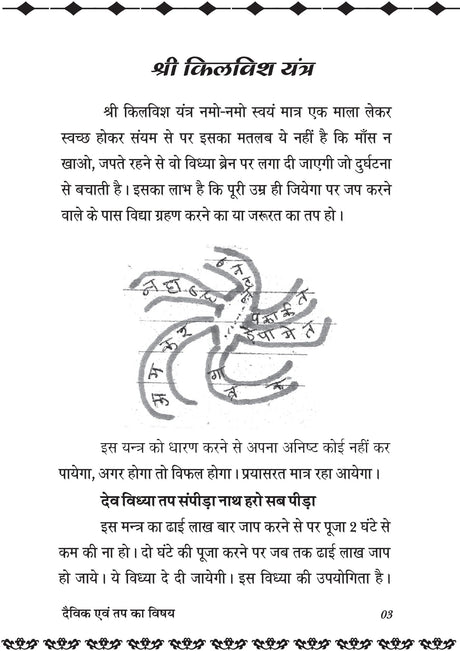 श्री किलविश यंत्र
श्री किलविश यंत्र नमो-नमो स्वयं मात्र एक माला लेकर
स्वच्छ होकर संयम से पर इसका मतलब ये नहीं है कि माँस न
खाओ, जपते रहने से वो विध्या ब्रेन पर लगा दी जाएगी जो दुर्घटना
से बचाती है। इसका लाभ है कि पूरी उम्र ही जियेगा पर जप करने
वाले के पास विद्या ग्रहण करने का या जरूरत का तप हो।
इस यन्त्र को धारण करने से अपना अनिष्ट कोई नहीं कर
पायेगा, अगर होगा तो विफल होगा। प्रयासरत मात्र रहा आयेगा।
देव विध्या तप संपीड़ा नाथ हरो सब पीड़ा
इस मन्त्र का ढाई लाख बार जाप करने से पर पूजा 2 घंटे से
कम की ना हो। दो घंटे की पूजा करने पर जब तक ढाई लाख जाप
हो जाये। ये विध्या दे दी जायेगी। इस विध्या की उपयोगिता है।
दैविक एवं तप का विषय
03